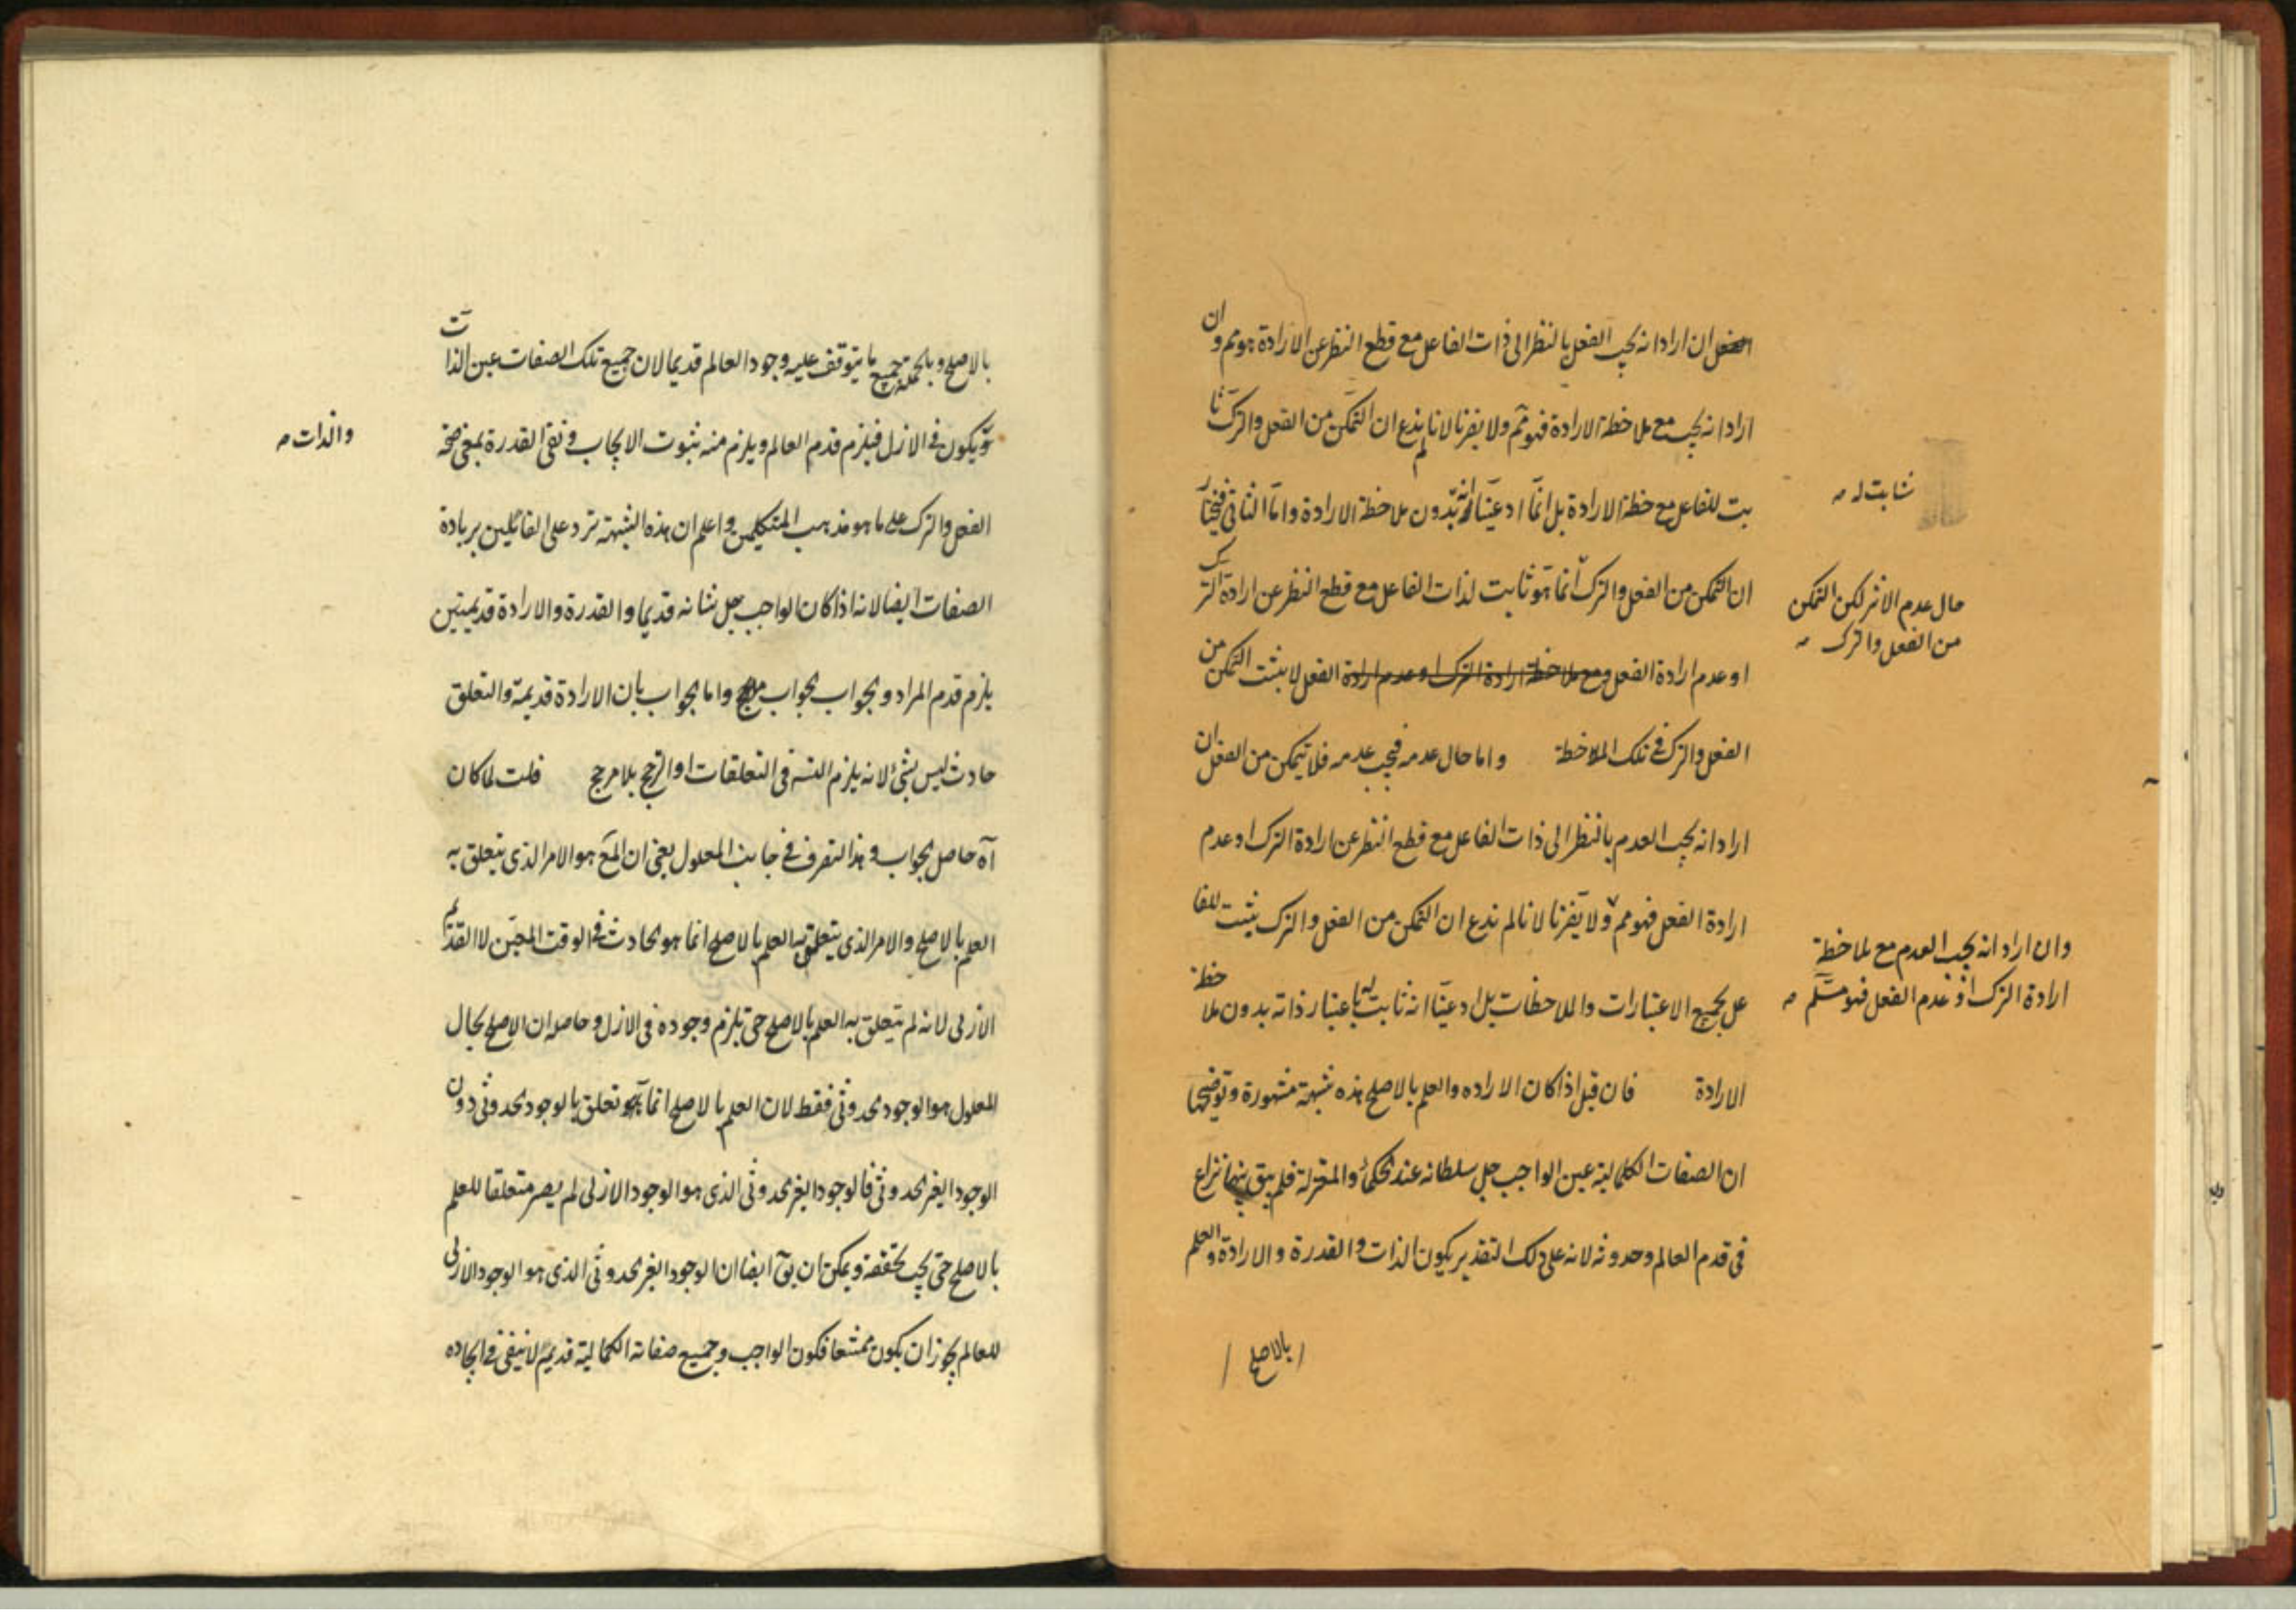 ان اراد انه يجب الفعل بالنظر الى ذات الفاعل مع قطع النظر عن الارادة فهو مم وان
اراد انه يجب مع ملاحظة الارادة فهو مم ولا يضرنا لانا لم ندع ان التمكن من الفعل والترك ثا
بت للفاعل مع حظة الارادة بل انما ادعينا انه بدون ملاحظة الارادة واما الثانى فنختار
ان التمكن من الفعل والترك انما هو ثابت لذات الفاعل مع قطع النظر عن ارادة الترك
او عدم ارادة الفعل ومع ملاحظة ارادة الترك او عدم ارادة الفعل لا يثبت التمكن من
الفعل والترك فى تلك الملاحظة واما حال عدمه فيجب عدمه فلا يتمكن من الفعل ان
اراد انه يجب العدم بالنظر الى ذات الفاعل مع قطع النظر عن ارادة الترك او عدم
ارادة الفعل فهو مم ولا يضرنا لانا لم ندع ان التمكن من الفعل والترك يثبت للفا
عل بجميع الاعتبارات والملاحظات بل ادعينا انه ثابت له باعتبار ذاته بدون ملاحظة
الارادة فان قيل اذا كان الاراده والعلم بالاصلح هذه شبهة مشهورة وتوضيحها
ان الصفات الكمالية عين الواجب جل سلطانه عند الحكماء والمعتزلة فلم يبق بينهما نزاع
فى قدم العالم وحدوثه لانه على ذلك التقدير يكون الذات والقدرة والارادة والعلم
بالاصلح
ثابت له صح
حال عدم الاثر لكن التمكن
من الفعل والترك صح
وان اراد انه يجب العدم مع ملاحظة
ارادة الترك او عدم الفعل فهو مسلم صح
بالاصلح وبالجملة جميع ما يتوقف عليه وجود العالم قديما لان جميع تلك الصفات عين الذات
ويكون فى الازل فيلزم قدم العالم ويلزم منه ثبوت الايجاب ونفى القدرة بمعنى صحة
الفعل والترك على ما هو مذهب المتكلمين واعلم ان هذه الشبهة ترد على القائلين بزيادة
الصفات ايضا لانه اذا كان الواجب جل شانه قديما والقدرة والارادة قديمتين
يلزم قدم المراد والجواب الجواب واما الجواب بان الارادة قديمة والتعلق
حادث ليس بشئ لانه يلزم التسه فى التعلقات او الترجيح بلا مرجح قلت لما كان
آه حاصل الجواب وهذا التصرف فى جانب المعلول يعنى ان المع هو الامر الذى يتعلق به
العلم بالاصلح والامر الذى يتعلق به العلم بالاصلح انما هو الحادث فى الوقت المعين لا القديم
الازلى لانه لم يتعلق به العلم بالاصلح حتى يلزم وجوده فى الازل وحاصله ان الاصلح بحال
المعلول هو الوجود الحدوثى فقط لان العلم بالاصلح انما هو تعلق بالوجود الحدوثى دون
الوجود الغير الحدوثى فالوجود الغير الحدوثى الذى هو الوجود الازلى لم يصر متعلقا للعلم
بالاصلح حتى يجب تحققه ويمكن ان يق ايضا ان الوجود الغير الحدوثى الذى هو الوجود الازلى
للعالم يجوز ان يكون ممتنعا فكون الواجب وجميع صفاته الكمالية قديمة لا يكفى فى ايجاده
والذات صح